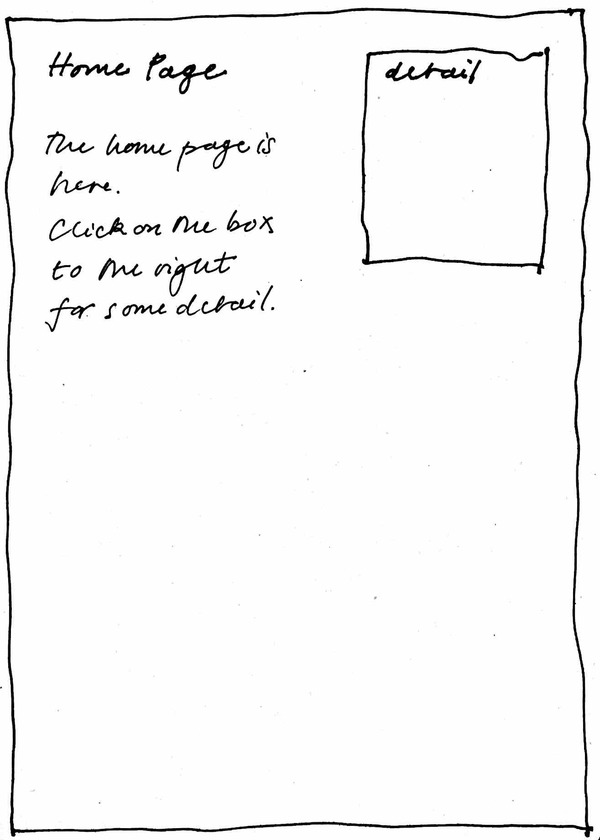 Home Page
detail
The home page is
here.
Click on the box
to the right
for some detail.